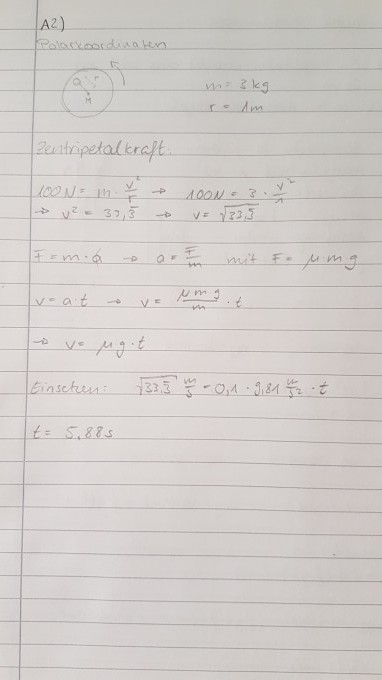 A2)
Polarkoordinaten
r
M
m = 3kg
r = 1m
Zentripetalkraft:
100N = m · v²/r → 100N = 3 · v²/1
→ v² = 33,3̅ → v = √33,3̅
F = m · a → a = F/m mit F = μ m g
v = a · t → v = μmg/m · t
→ v = μg · t
Einsetzen: √33,3̅ m/s = 0,1 · 9,81 m/s² · t
t = 5,88s